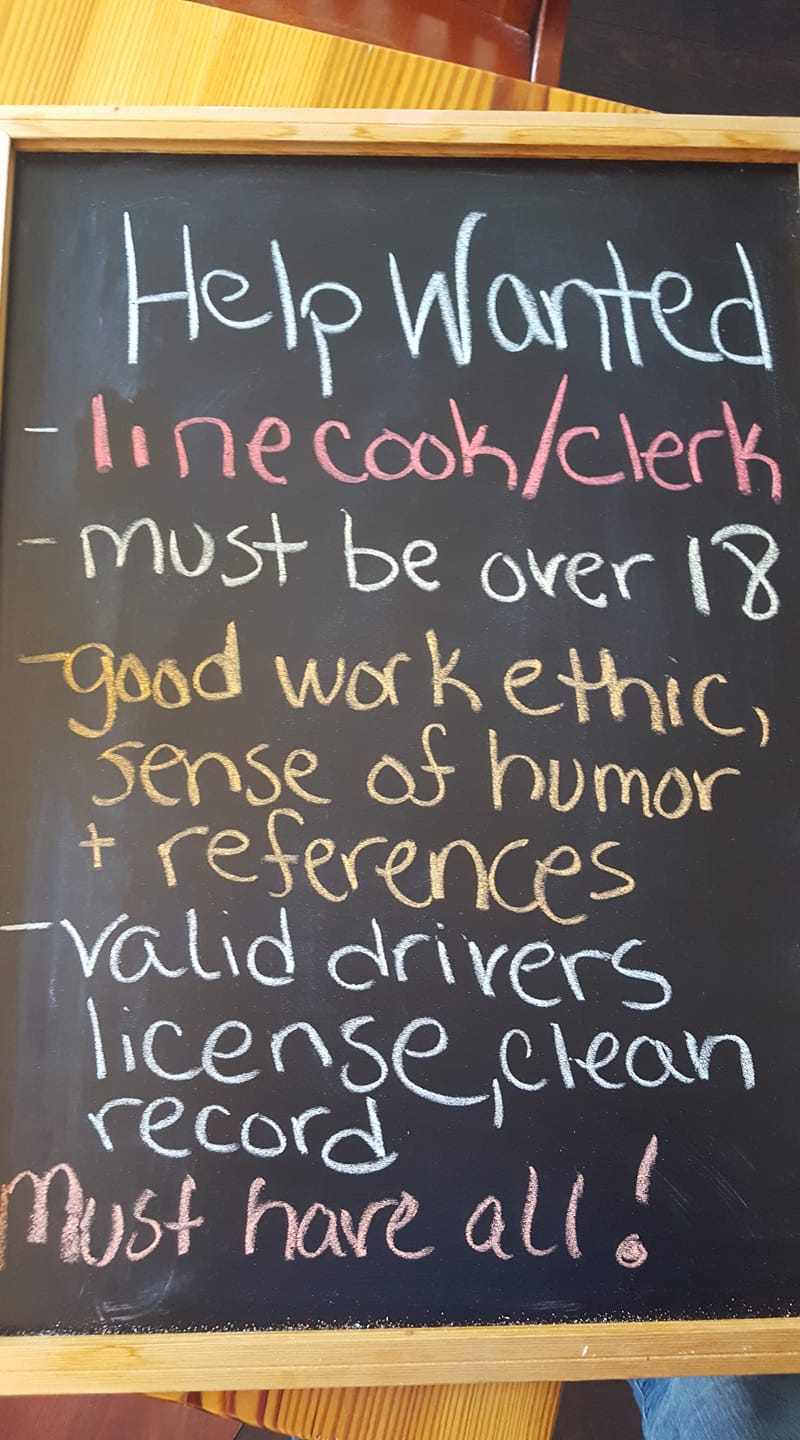 Help Wanted
- line cook/clerk
- must be over 18
- good work ethic,
sense of humor
+ references
- valid drivers
license, clean
record
Must have all!